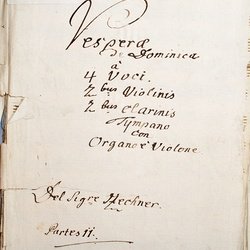 Vesperæ
De Dominica
à
4 Voci.
2bus Violinis
2bus Clarinis
Tympano
con
Organo è Violone
Del Sigre Hechner.
Partes 11.